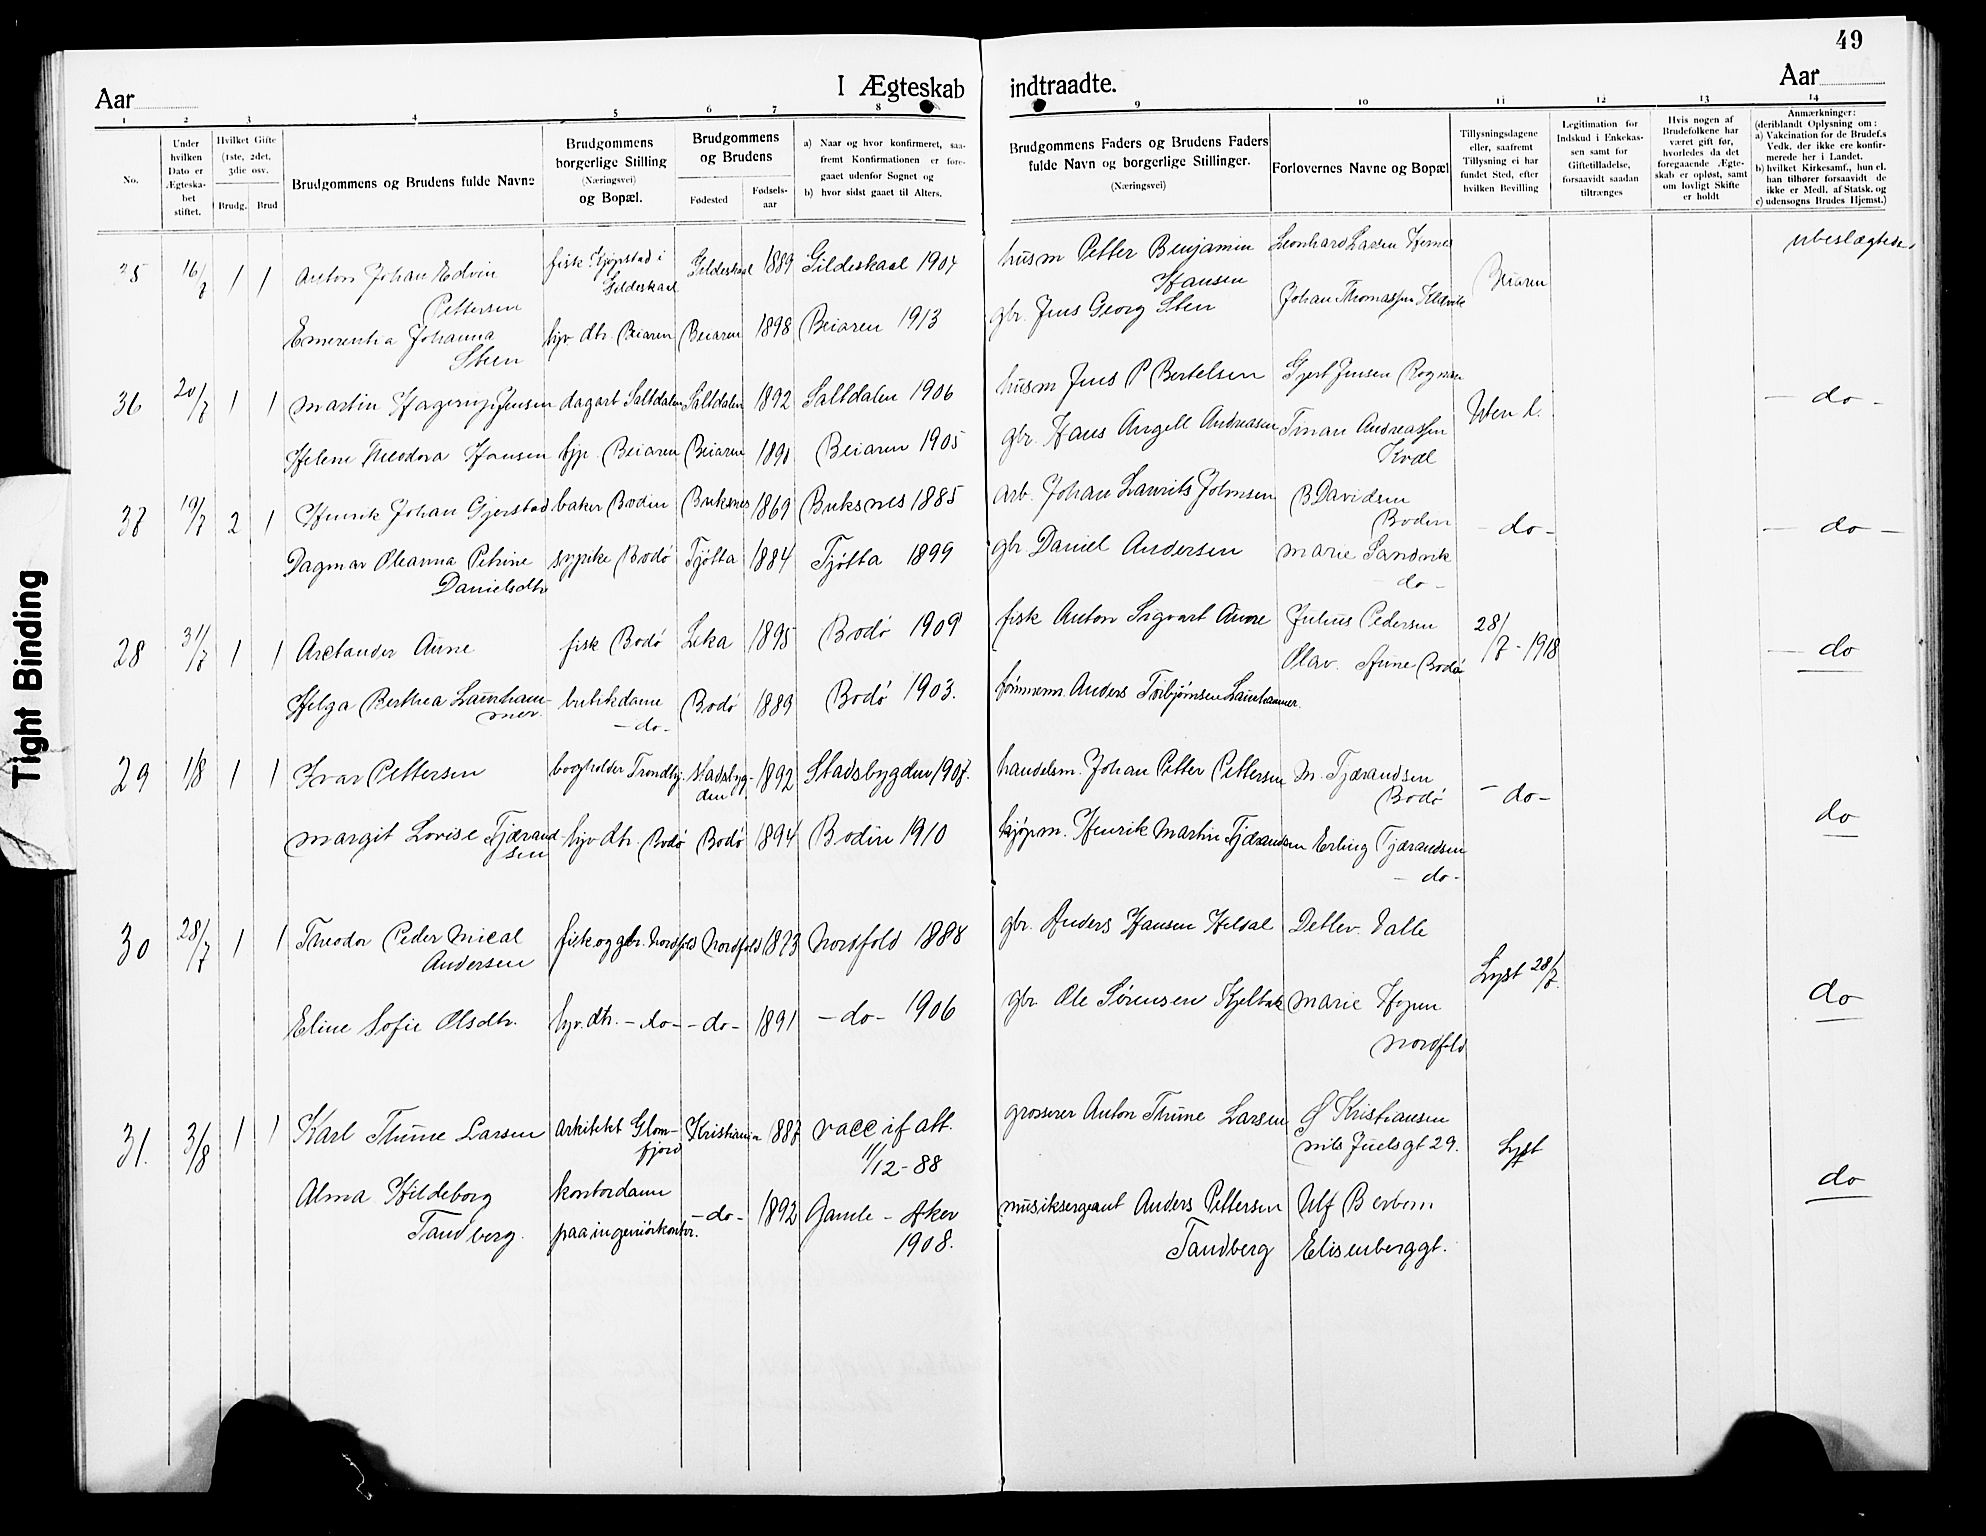 49
Aar
I Ægteskab indtraadte.
Aar
1 2 3 4 5 6 7 8 9 10 11 12 13 14
No.
Under hvilken Dato er Ægteska- bet stiftet.
Hvilket Gifte (1ste, 2det, 3die osv.
Brudg. Brud
Brudgommens og Brudens fulde Navne
Brudgommens borgerlige Stilling (Næringsvei) og Bopæl.
Brudgommens og Brudens
Fødested
Fødsels- aar
a) Naar og hvor konfirmeret, saa- fremt Konfirmationen er fore- gaaet udenfor Sognet og
b) hvor sidst gaaet til Alters.
Brudgommens Faders og Brudens Faders fulde Navn og borgerlige Stillinger.
(Næringsvei)
Forlovernes Navne og Bopæl
Tillysningsdagene eller, saafremt Tillysning ei har fundet Sted, efter hvilken Bevilling
Legitimation for Indskud i Enkekas- sen samt for Giftetilladelse, forsaavidt saadan tiltrænges
Hvis nogen af Brudefolkene har været gift før, hvorledes da det foregaaende Ægte- skab er opløst, samt om lovligt Skifte er holdt
Anmærkninger: (deriblandt Oplysning om: a) Vakcination for de Brudef.s Vedk. der ikke ere konfir- merede her i Landet. b) hvilket Kirkesamf., hun el. han tilhører forsaavidt de ikke er Medl. af Statsk. og c) udensogns Brudes Hjemst.)
25 16/7 1 1 Anton Johan Edvin Pettersen fisk. Gildeskaal Gildeskaal 1889 Gildeskaal 1904 husm Petter Benjamin Hansen Leonhard Larsen Beiaren ubeslægtede
Emerentia Johanna Steen hjv dtr. Beiaren Beiaren 1898 Beiaren 1913 gbr. Jens Georg Steen Johan Thomassen
36 20/7 1 1 Martin Hagerup Jensen dagarb Saltdalen Saltdalen 1892 Saltdalen 1906 husm Jens P Bertelsen Gjert Jensen Rognan Uten l. - do -
Helene Theodora Hansen hjp. Beiaren Beiaren 1890 Beiaren 1905 gbr. Hans Angell Andreasen Tinan Andreassen Kvæl
37 19/7 2 1 Henrik Johan Gjerstad baker Bodin Buksnes 1869 Buksnes 1885 arb. Johan Laurits Johnsen B Davidsen Bodin - do - - do -
Dagmar Oleanna Petrine Danielsdtr sypike Bodø Tjøtta 1884 Tjøtta 1899 gbr Daniel Andersen Marie Sandvik - do -
28 31/7 1 1 Arelander Aune fisk Bodø Leka 1895 Bodø 1909 fisk Anton Sigvart Aune Julius Pedersen 28/7 - 1918 - do
Olav. Aune Bodø
Helga Berthea Laurhammer butikdame - do - Bodø 1889 Bodø 1903. tømmerm. Anders Torbjørnsen Laurhammer.
29 1/8 1 1 Ivar Pettersen bogholder Trondhj. Stadsbyg- den 1892 Stadsbygden 1907. handelsm. Johan Petter Pettersen M. Tjærandsen Bodø - do - do
Margit Lovise Tjærand- sen hjv dtr. Bodø Bodø 1894 Bodin 1910 kjøpm. Henrik Martin Tjærandsen Erling Tjærandsen - do -
30 28/7 1 1 Theodor Peder Mical Andersen fisk og gbr. Nordfold Nordfold 1873 Nordfold 1888 gbr. Anders Hansen Helsal Detlev. Valle Lyst 28/7. do
Eline Sofie Olsdtr. hjv. dtr. - do - - do - 1891 - do - 1906 gbr. Ole Sørensen Kjelbak Marie Hopen Nordfold
31. 3/8 1 1 Karl Thune Larsen arkitekt Glom- fjord Kristiania 1887 vacc if att. 11/12 - 88 grosserer Anton Thune Larsen Ø Kristiansen Nils Juelsgt 29. Lyst do
Alma Hildeborg Tandberg. kontordame paa ingeniørkontor. - do - 1892 Gamle - Aker 1908. musiksergeant Anders Pettersen Tandberg Ulf Berbom Elisenberggt.
Tight Binding